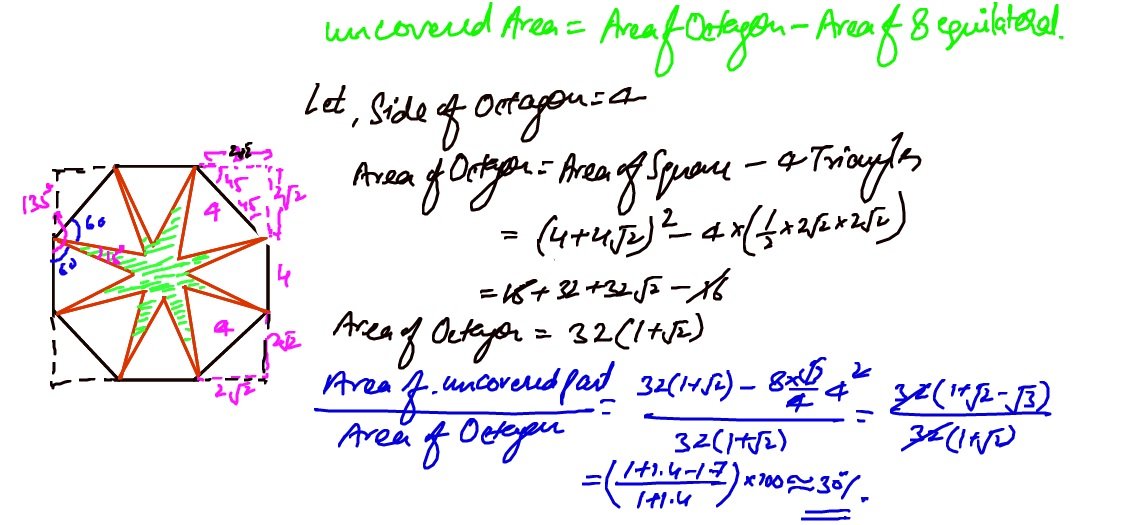 uncovered Area = Area of Octagon - Area of 8 equilateral.
Let, Side of Octagon = 4
Area of Octagon = Area of Square - 4 Triangles
= (4+4√2)² - 4×(1/2×2√2×2√2)
= 16 + 32 + 32√2 - 16
Area of Octagon = 32(1+√2)
Area of uncovered part / Area of Octagon = (32(1+√2) - 8×√3/4 4²) / 32(1+√2) = 32(1+√2-√3) / 32(1+√2)
= ((1+1.4-1.7)/(1+1.4))×100 ≈ 30%.
2√2
45
2√2
45
4
135°
60
60
15°
4
4
2√2
2√2